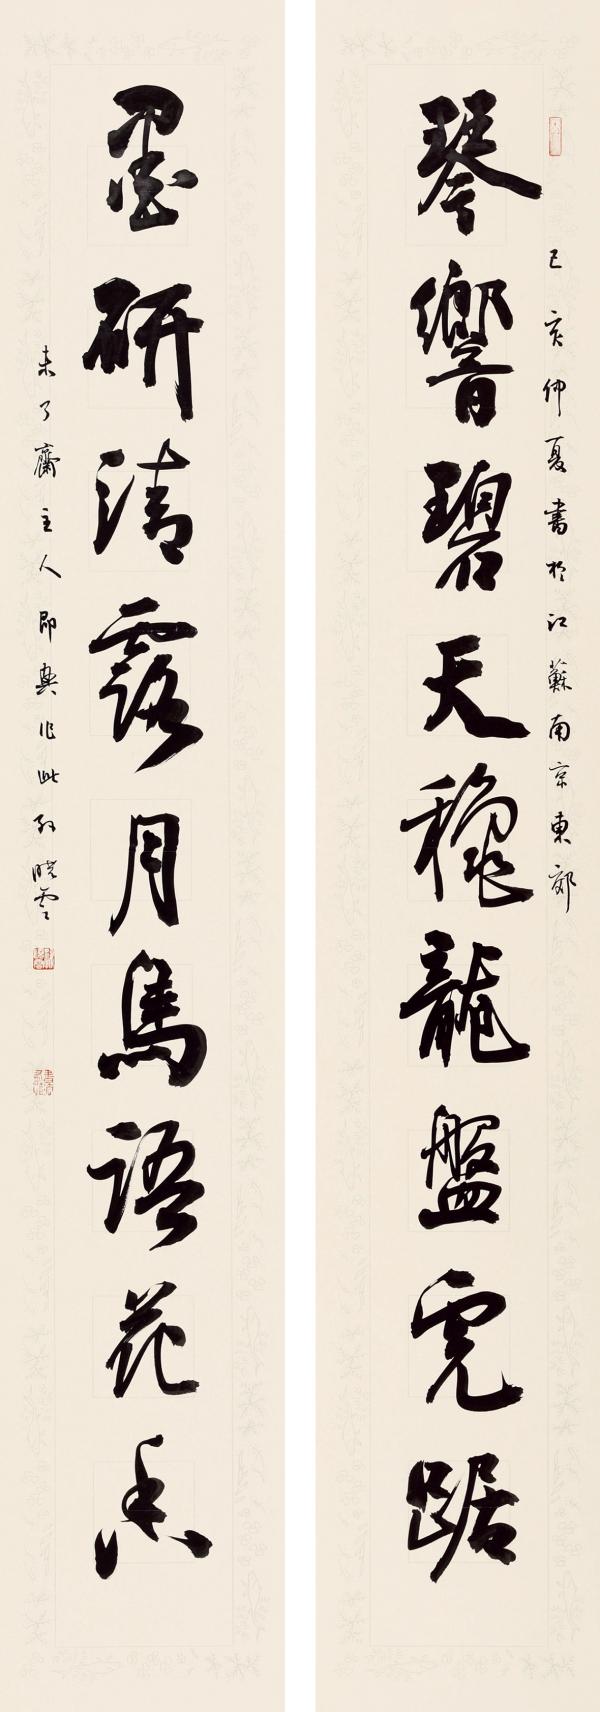 己亥仲夏書於江蘇南京東郊
琴響碧天穩龍盤虎踞
墨研清露月鳥語花香
未了齋主人即興作此孫曉雲